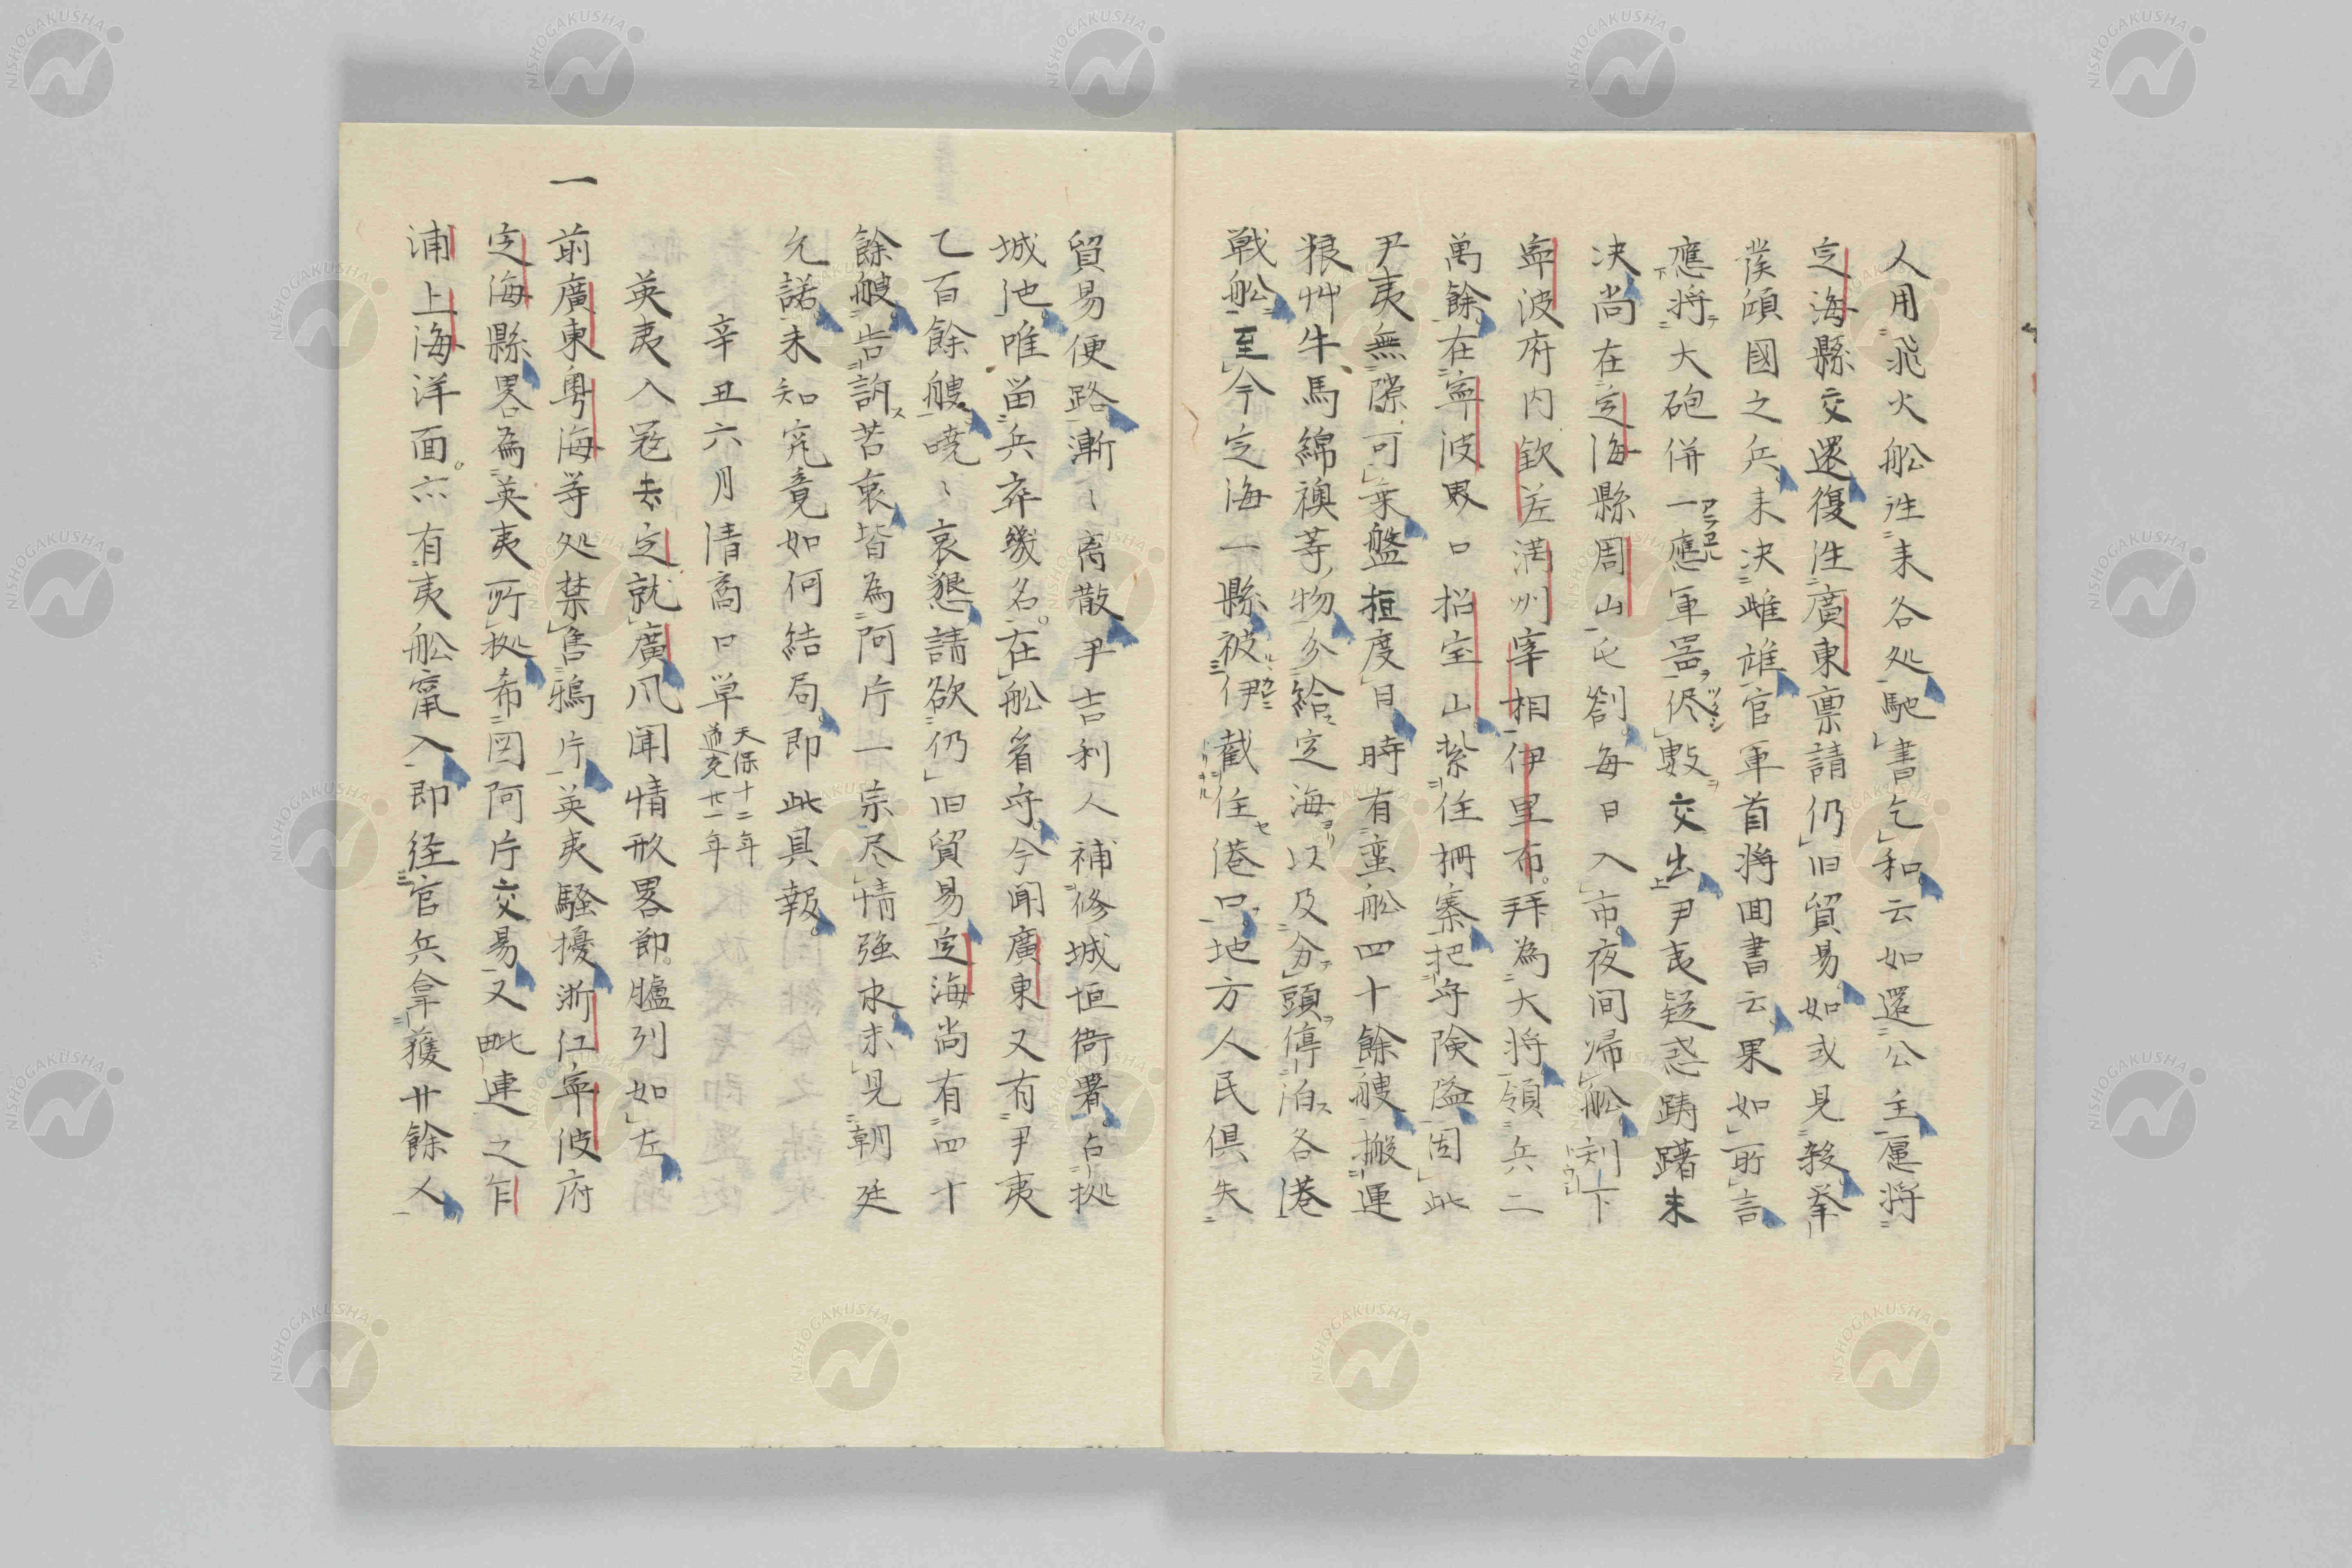 人用飛火船往来各処馳書乞和云如還公主愿将
定海縣交還復往廣東禀請仍旧貿易如或見殺挙
傾國之兵未决雌雄官軍首将囬書云果如所言
應将大砲併一應軍噐侭數交出尹夷疑惑躊躇未
决尚在定海縣周山屯劄每日入市夜间帰船刻下
寧波府内欽差満州宰相伊里布拜為大将領兵二
萬餘在寧波界口招宝山紮住柵寨把守険隘固此
尹夷無隙可乗盤桓度日時有蛮船四十餘艘搬運
粮艸牛馬綿襖等物分給定海以及分頭停泊各港
戦船至今定海一縣被伊截住港口地方人民俱失
貿易便路漸〻离散尹吉利人補修城垣衙署占拠
城池唯畄兵卒幾名在船看守今聞廣東又有尹夷
乙百餘艘嘵〻哀懇請欲仍旧貿易定海尚有四十
餘艘告訴苦衷皆為阿片一宗尽情強求未見朝廷
允諾未知究竟如何結局即此具報
辛丑六月清商口单
天保十二年
道光廿一年
英夷入冦去定就廣凡聞情形畧節臚列如左
一
前廣東粤海等処禁售鴉片英夷騒擾浙江寧波府
定海縣畧為英夷所拠希図阿片交易又毗連之乍
浦上海洋面亦有夷船竄入即経官兵拿獲廿餘人